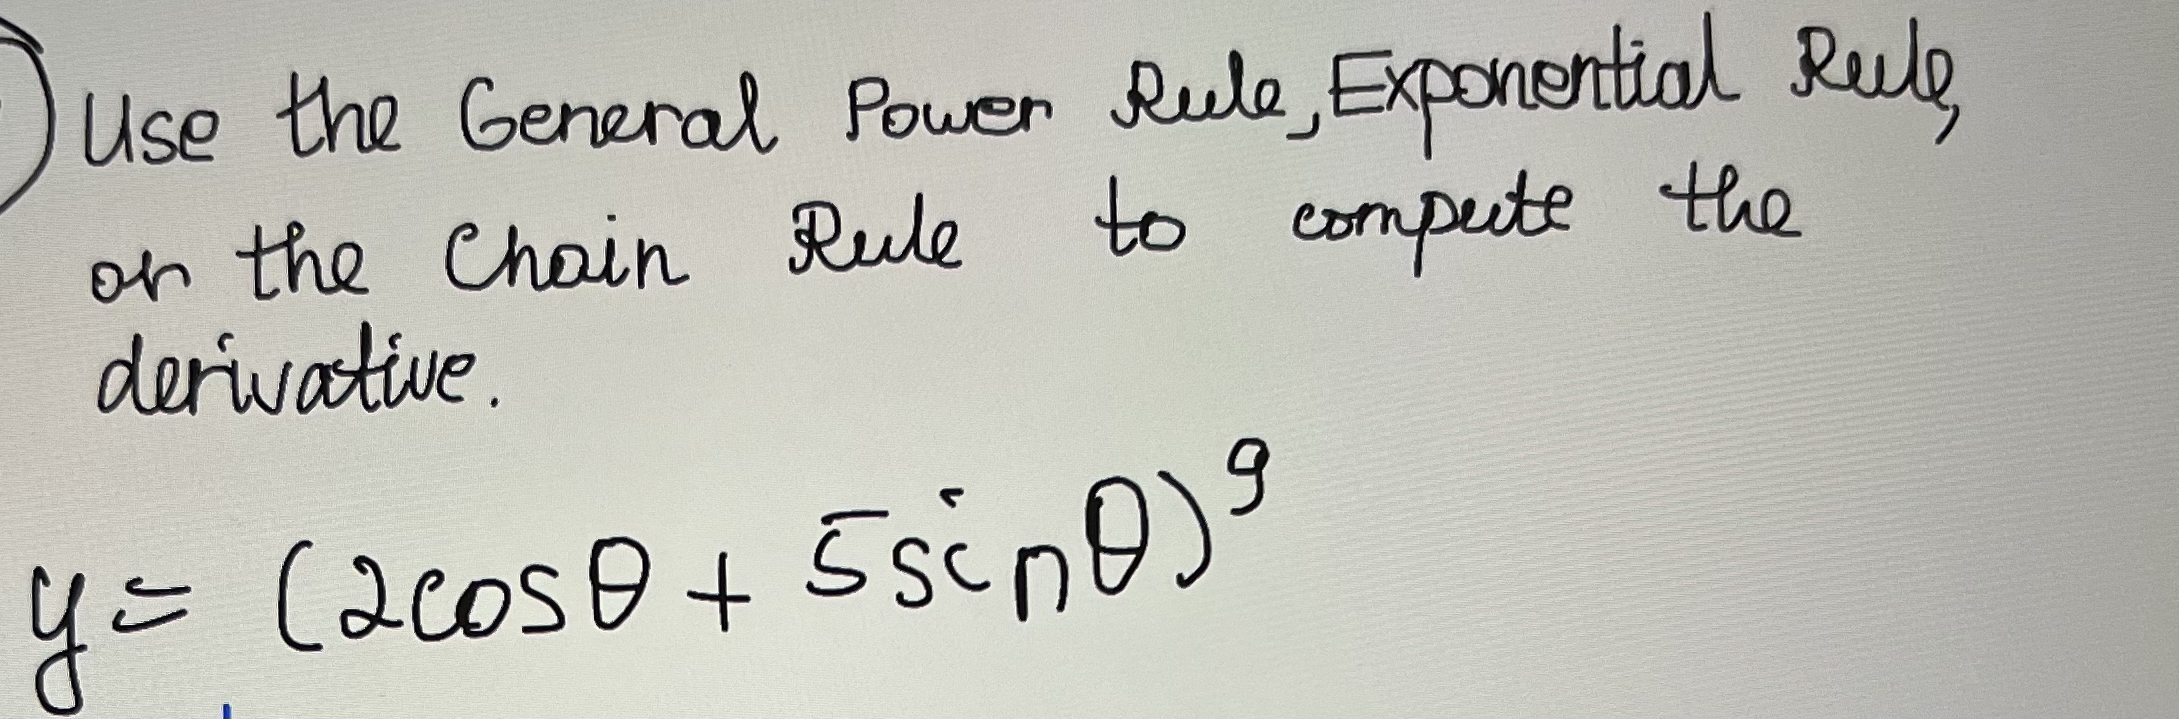 Use the General Power Rule, Exponential Rule,
or the Chain Rule to compute the
derivative.
y = (2cosθ + 5sinθ)⁹